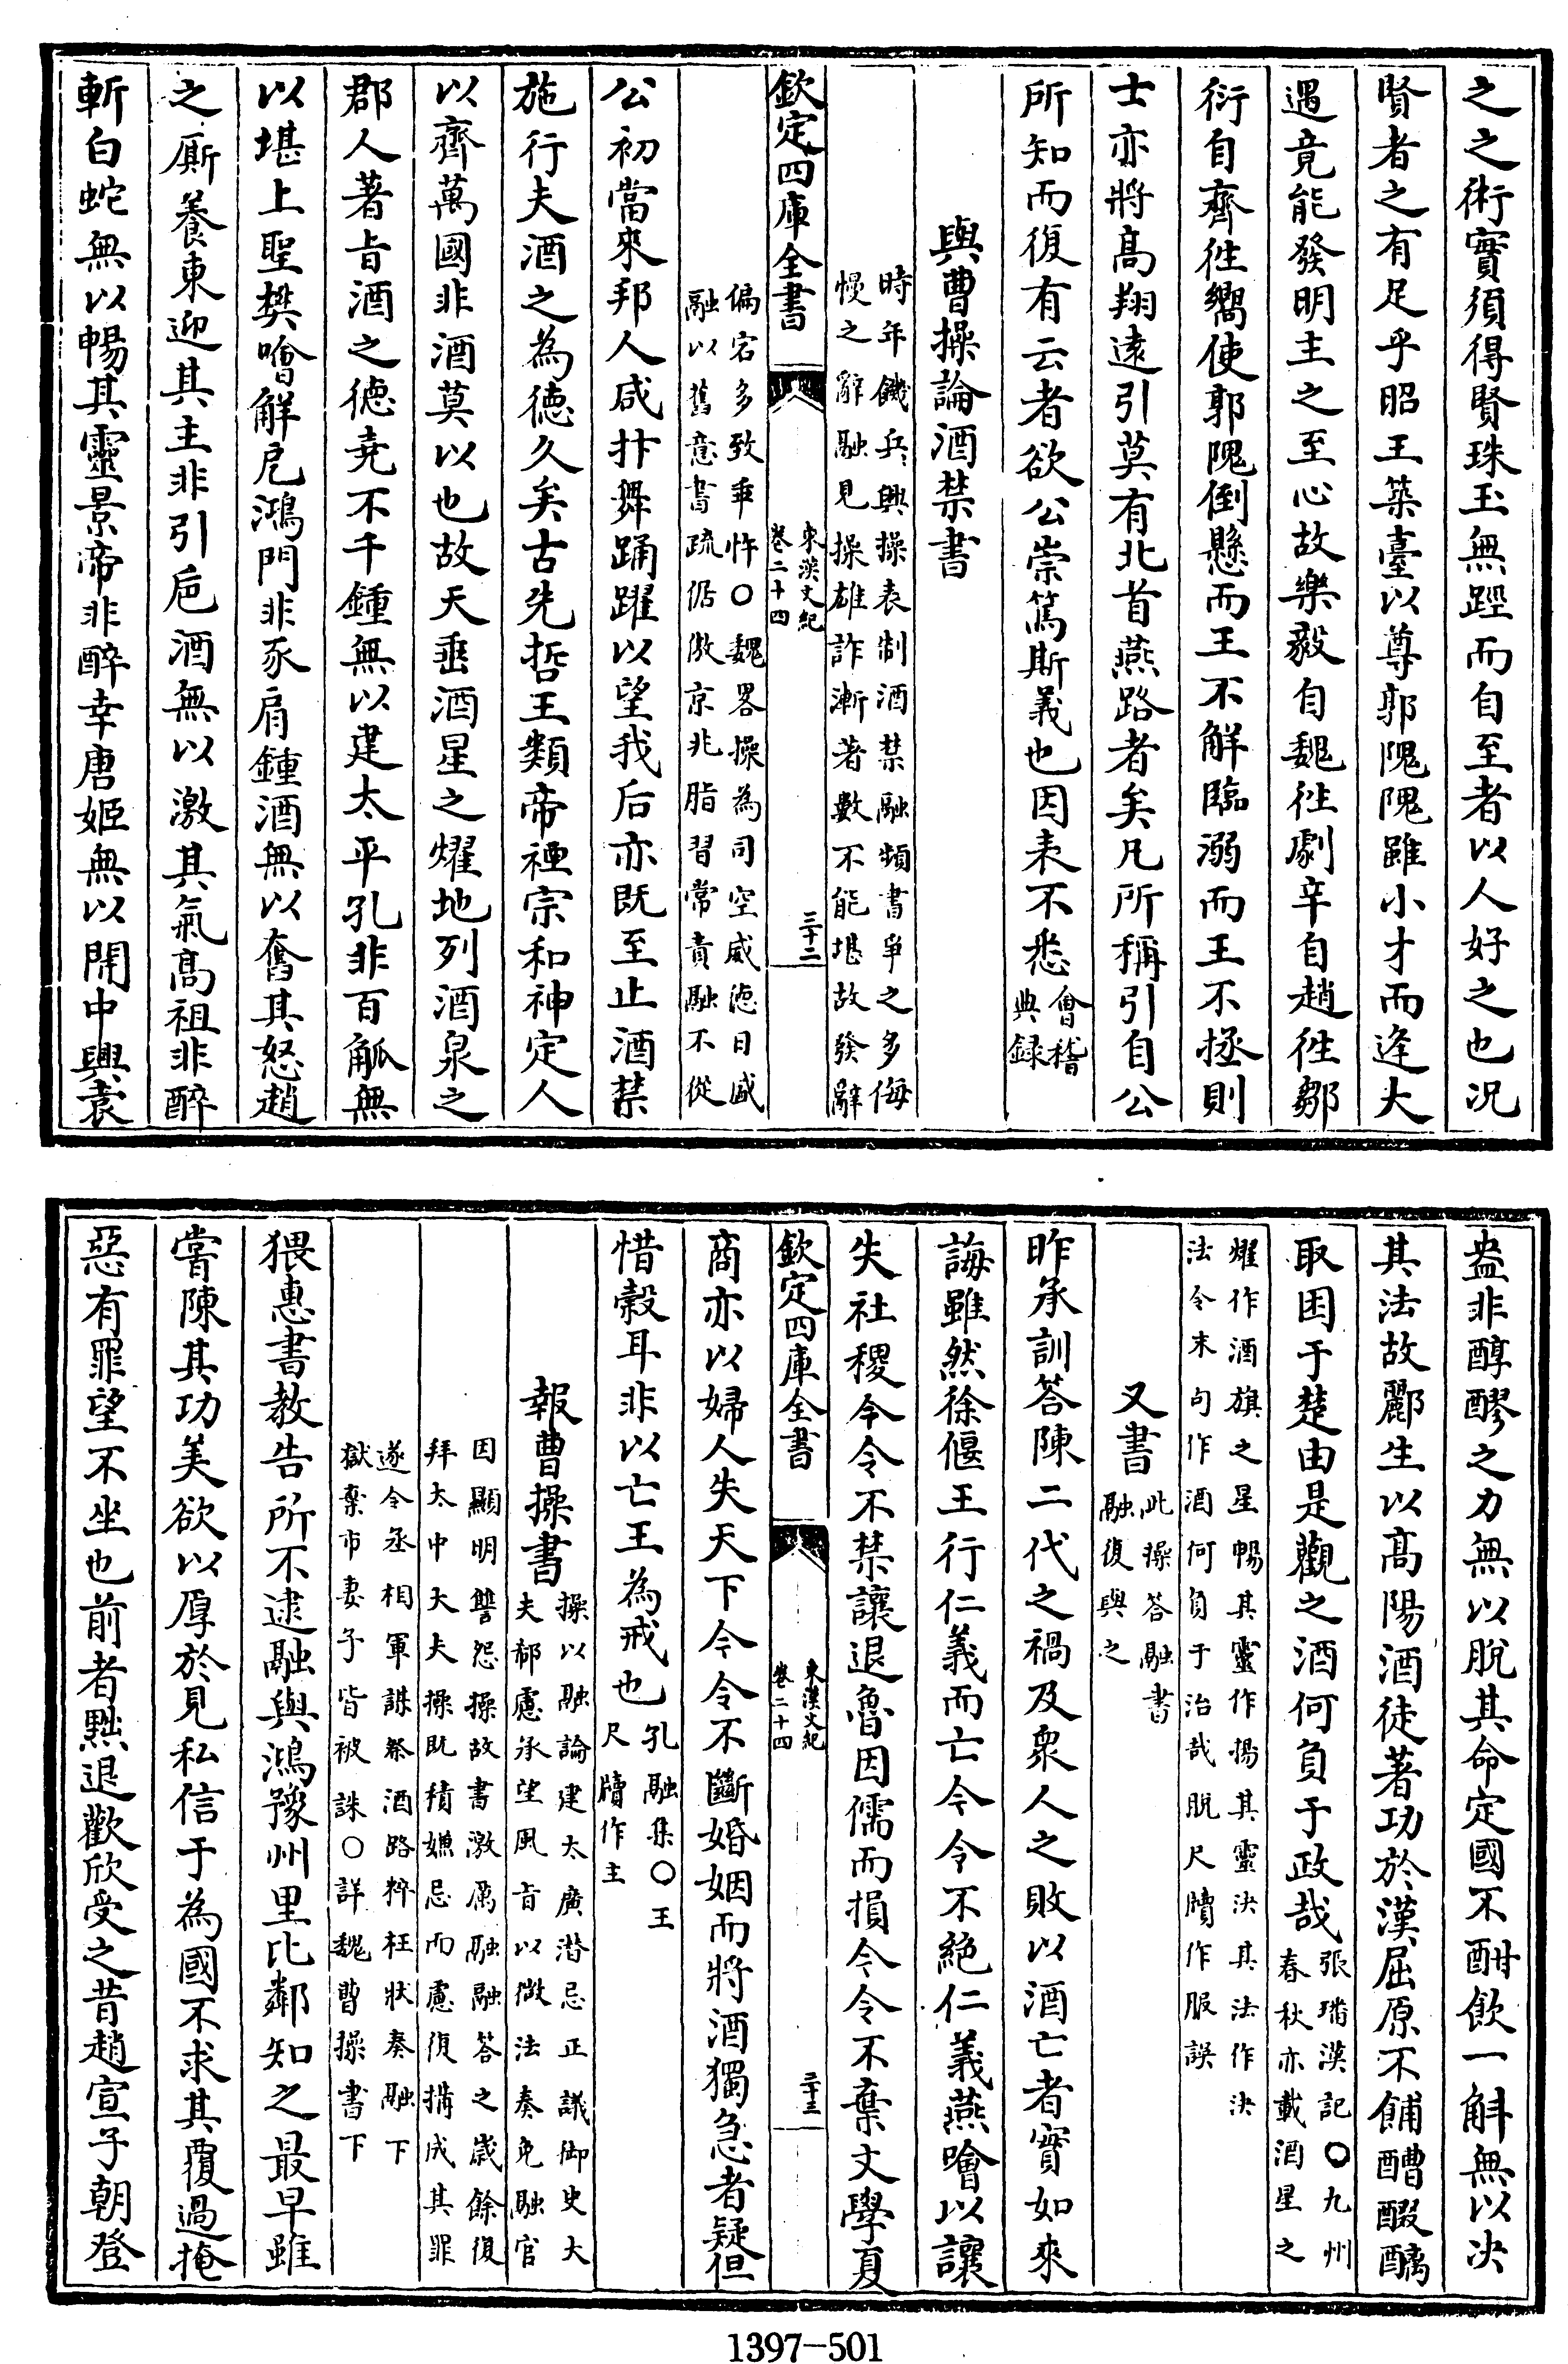 之之術實須得賢珠玉無踁而自至者以人好之也况
賢者之有足乎昭王築臺以尊郭隗隗雖小才而逢大
遇竟能發明主之至心故樂毅自魏徃劇辛自趙徃鄒
衍自齊徃嚮使郭隗倒懸而王不解臨溺而王不拯則
士亦將髙翔遠引莫有北首燕路者矣凡所稱引自公
所知而復有云者欲公崇篤斯義也因表不悉
會稽
典録
與曹操論酒禁書
時年饑兵興操表制酒禁融頻書爭之多侮
慢之辭融見操雄詐漸著數不能堪故發辭
欽定四庫全書
東漢文紀
卷二十四
三十二
偏宕多致乖忤○魏畧操為司空威德日盛
融以舊意書疏倨傲京兆脂習常責融不從
公初當來邦人咸抃舞踊躍以望我后亦既至止酒禁
施行夫酒之為德久矣古先哲王類帝禋宗和神定人
以齊萬國非酒莫以也故天垂酒星之燿地列酒泉之
郡人著㫖酒之德堯不千鍾無以建太平孔非百觚無
以堪上聖樊噲解戹鴻門非豕肩鍾酒無以奮其怒趙
之厮養東迎其主非引巵酒無以激其氣髙祖非醉
斬白蛇無以暢其靈景帝非醉幸唐姬無以開中興袁
盎非醇醪之力無以脫其命定國不酣飲一斛無以决
其法故酈生以髙陽酒徒著功於漢屈原不餔醩醊醨
取困于楚由是觀之酒何負于政哉
張璠漢記○九州
春秋亦載酒星之
燿作酒旗之星暢其靈作揚其靈決其法作決
法令末句作酒何負于治哉脫尺牘作服誤
又書
此操答融書
融復與之
昨承訓答陳二代之禍及衆人之敗以酒亡者實如來
誨雖然徐偃王行仁義而亡今令不絶仁義燕噲以讓
失社稷今令不禁讓退魯因儒而損今令不棄文學夏
欽定四庫全書
東漢文紀
卷二十四
三十三
商亦以婦人失天下今令不斷婚姻而將酒獨急者疑但
惜穀耳非以亡王為戒也
孔融集○王
尺牘作主
報曹操書
操以融論建太廣潜忌正議御史大
夫郗慮承望風㫖以微法奏免融官
因顯明讐怨操故書激厲融融答之嵗餘復
拜太中大夫操既積嫌忌而慮復搆成其罪
遂令丞相軍謀祭酒路粹枉狀奏融下
獄棄市妻子皆被誅○詳魏曹操書下
猥惠書教告所不逮融與鴻豫州里比鄰知之最早雖
嘗陳其功美欲以厚於見私信于為國不求其覆過掩
惡有罪望不坐也前者黜退歡欣受之昔趙宣子朝登
1397-501